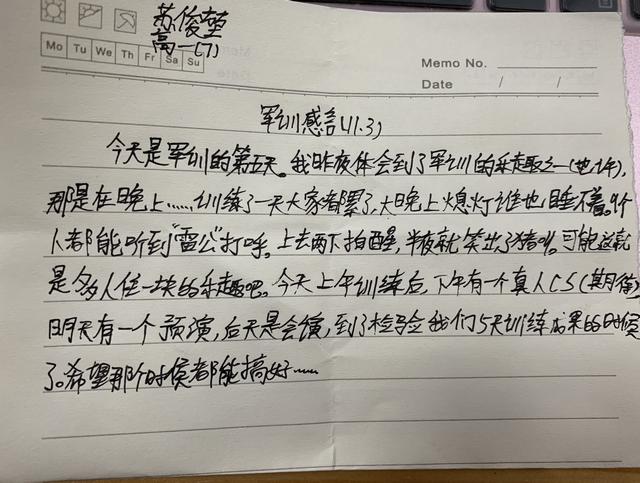 苏俊堃
高一(7)
Mo Tu We Th Fr Sa Su
Memo No.
Date / /
军训感言(11.3)
今天是军训的第五天。我昨夜体会到了军训的乐趣之一(
那是在晚上……训练了一天大家都累了,大晚上熄灯谁也睡不着。9个
人都能听到“雷公”打呼。上去两下拍醒,半夜就笑出了猪叫。可能这就
是多人住一块的乐趣吧。今天上午训练后,下午有一个真人CS(期待)
明天有一个预演,后天是会演,到了检验我们5天训练成果的时候
了。希望那个时候都能搞好……